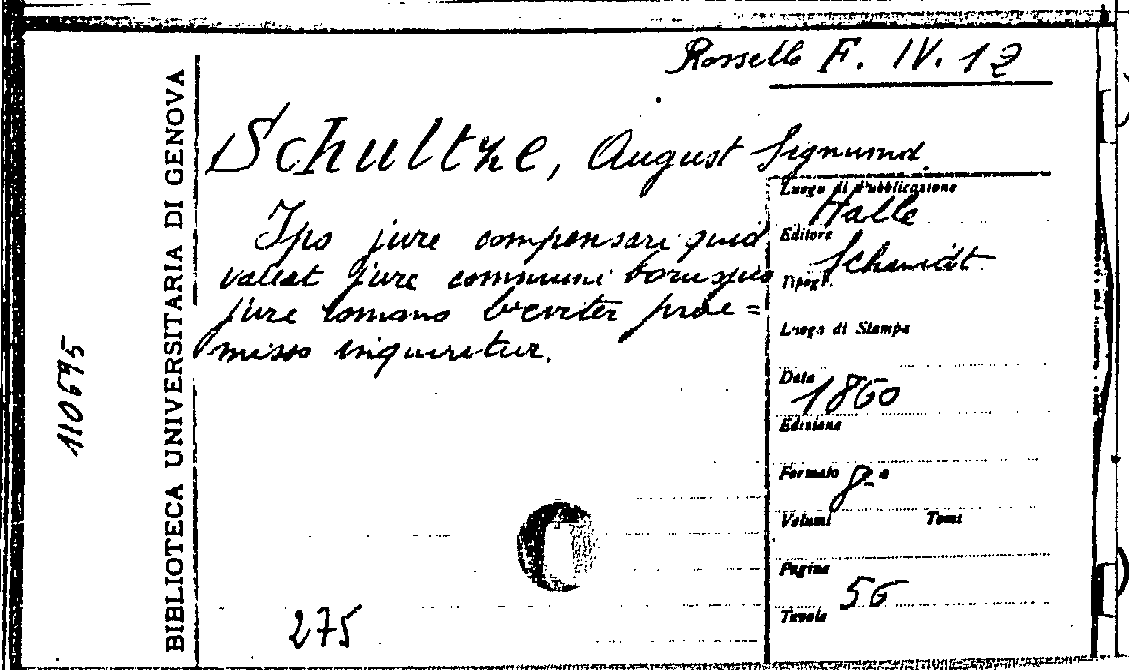 Rossello F. IV. 12
Schultze, August Sigmund.
Ipso jure compensari quid
valeat jure communi borussico
jure romano breviter prae=
misso inquiretur.
Luogo di Pubblicazione
Halle
Editore
Schmidt
Tipogr.
Luogo di Stampa
Data
1860
Edizione
Formato 8º
Volumi Tomi
Pagine
56
Tavole
275
BIBLIOTECA UNIVERSITARIA DI GENOVA
110695